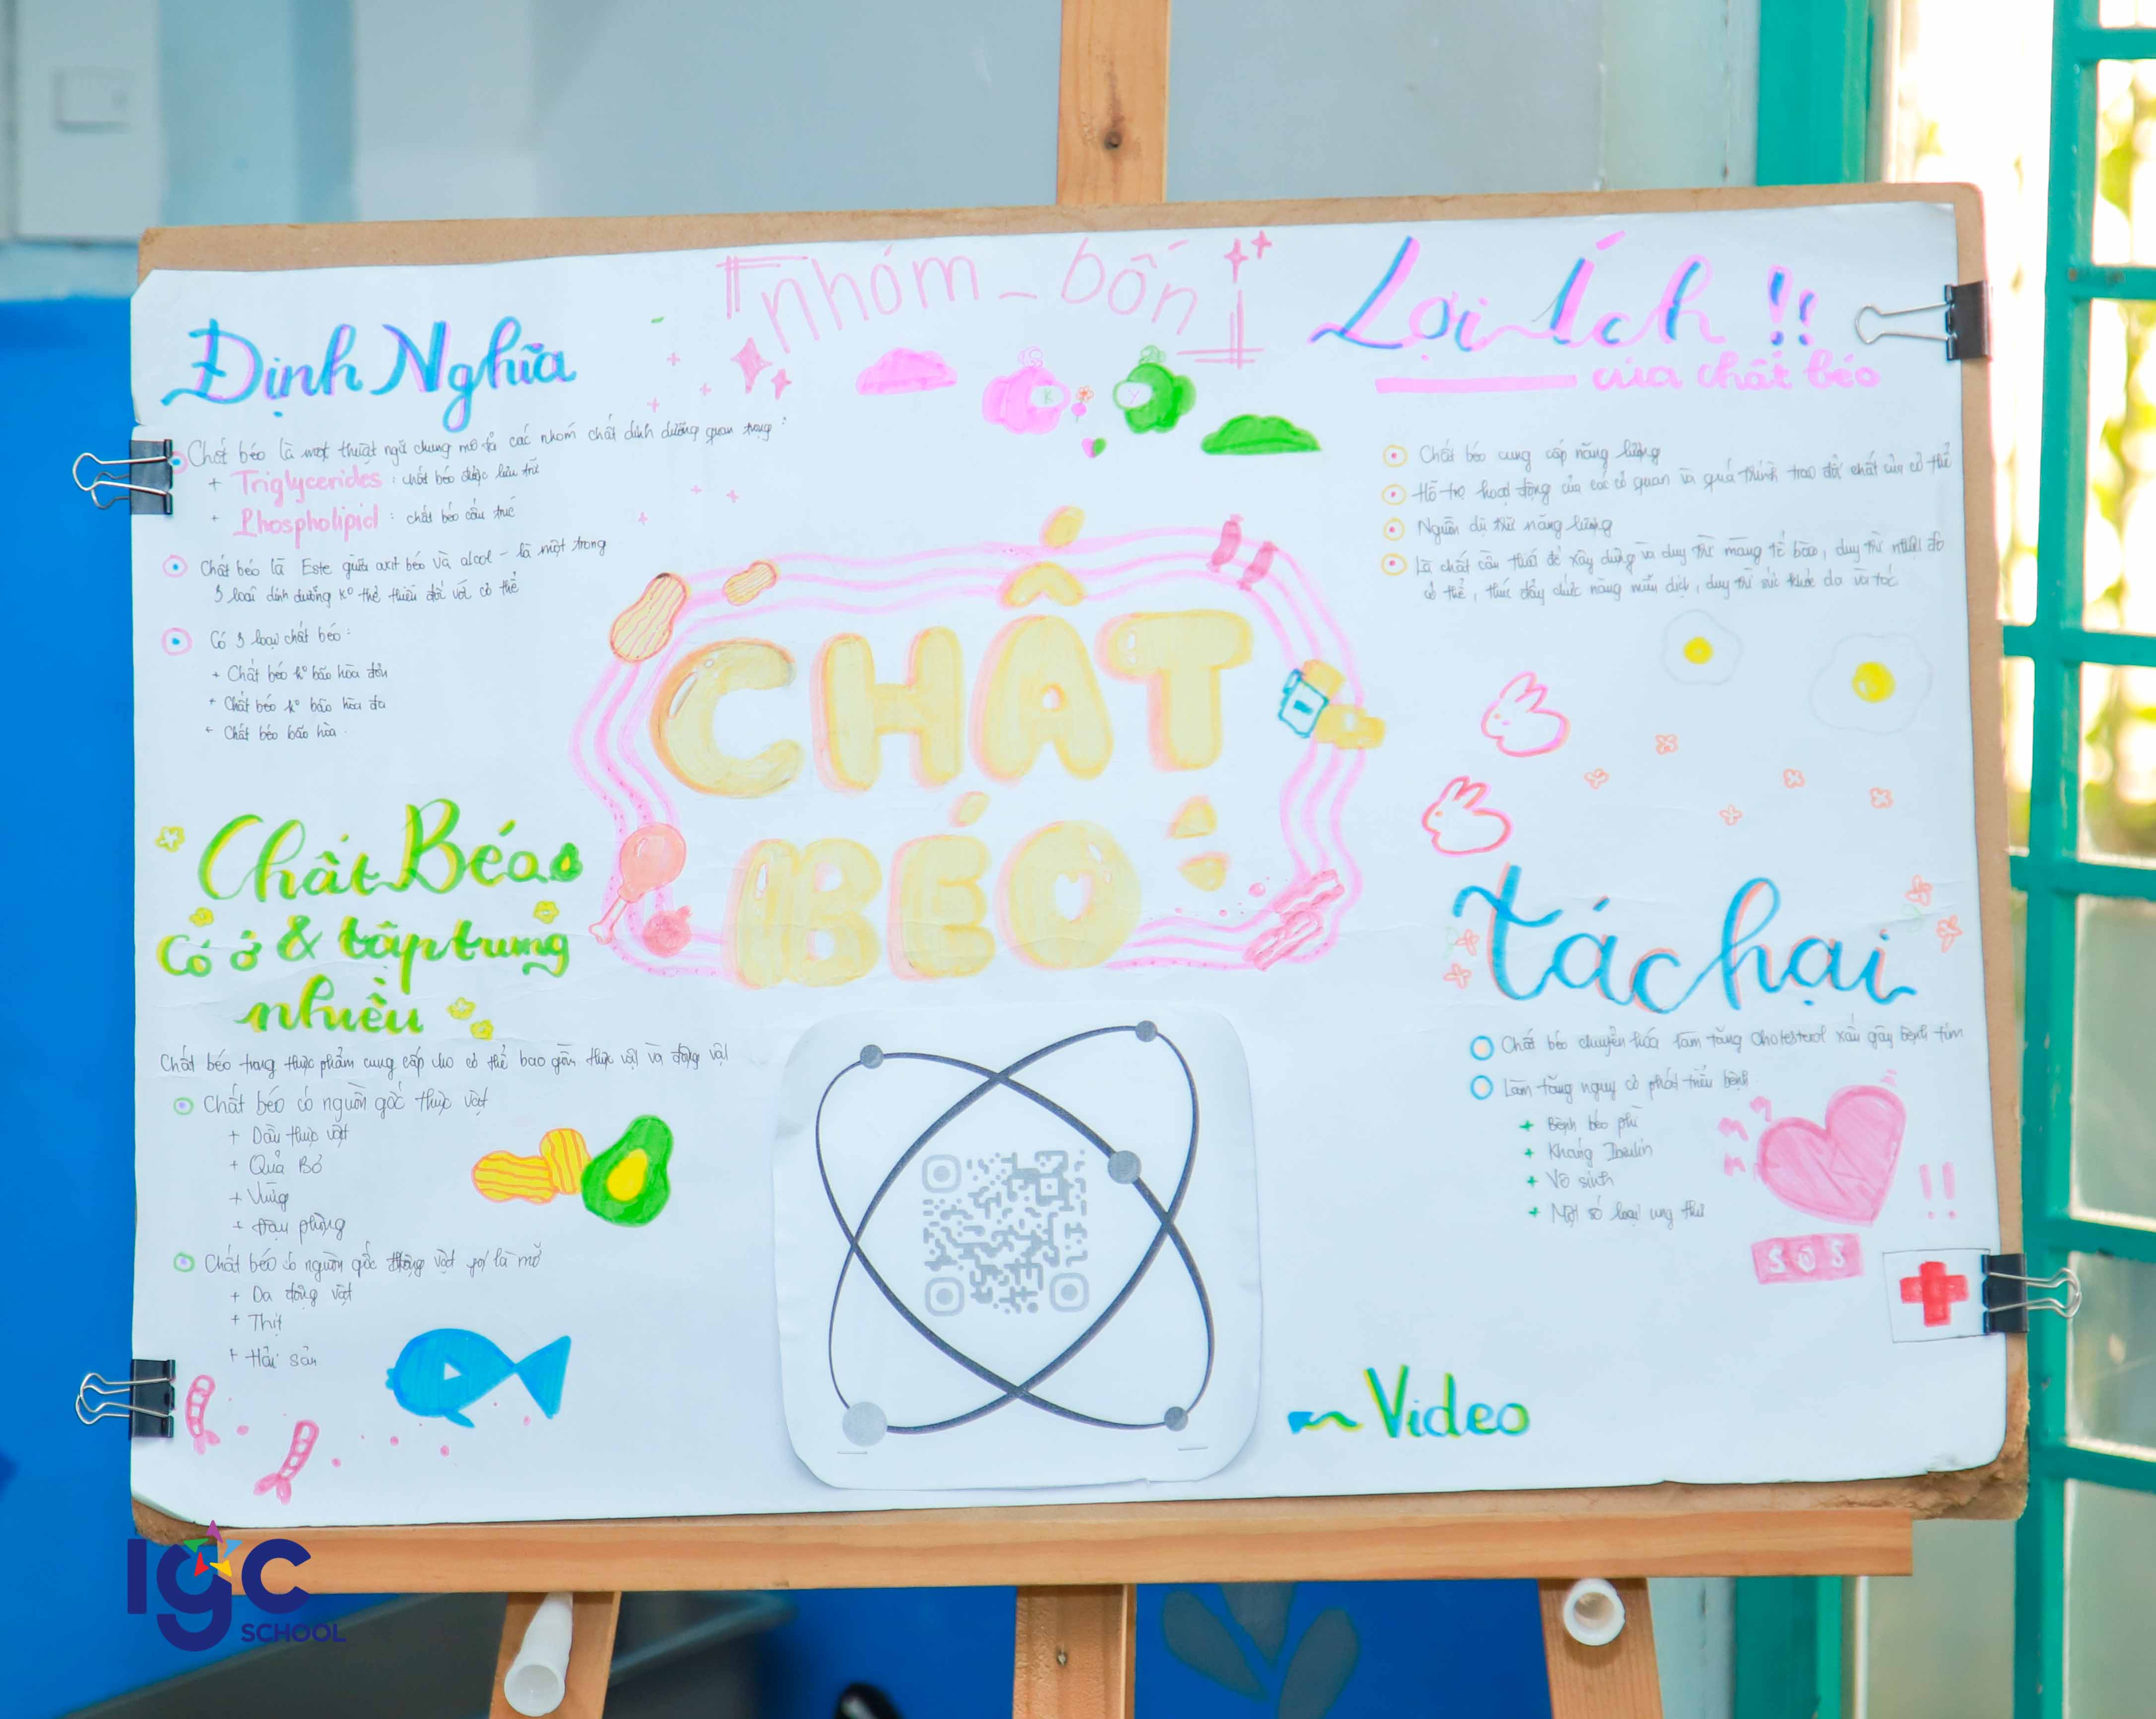 nhóm_bốn
Định Nghĩa
Chất béo là một thuật ngữ chung mô tả các nhóm chất dinh dưỡng quan trọng:
+ Triglycerides : chất béo được lưu trữ
+ Phospholipid : chất béo cấu trúc
Chất béo là Este giữa axit béo và alcol - là một trong
3 loại dinh dưỡng Kº thể thiếu đối với cơ thể
Có 3 loại chất béo:
+ Chất béo kº bão hòa đơn
+ Chất béo kº bão hòa đa
+ Chất béo bão hòa.
Chất Béo
Có ở & tập trung
nhiều
Chất béo trong thực phẩm cung cấp cho cơ thể bao gồm thực vật và động vật
Chất béo có nguồn gốc thực vật
+ Dầu thực vật
+ Quả Bơ
+ Vừng
+ Đậu phộng
Chất béo có nguồn gốc động vật gọi là mỡ
+ Da động vật
+ Thịt
+ Hải sản
CHẤT
BÉO
Lợi Ích !!
của chất béo
Chất béo cung cấp năng lượng
Hỗ trợ hoạt động của các cơ quan và quá trình trao đổi chất của cơ thể
Nguồn dự trữ năng lượng
Là chất cần thiết để xây dựng và duy trì màng tế bào, duy trì nhiệt độ
cơ thể, thúc đẩy chức năng miễn dịch, duy trì sức khỏe da và tóc
Tác hại
Chất béo chuyển hóa làm tăng Cholesterol xấu gây bệnh tim
Làm tăng nguy cơ phát triển bệnh
+ Bệnh béo phì
+ Kháng Insulin
+ Vô sinh
+ Một số loại ung thư
!!
SOS
Video
K
Y
IGC
SCHOOL